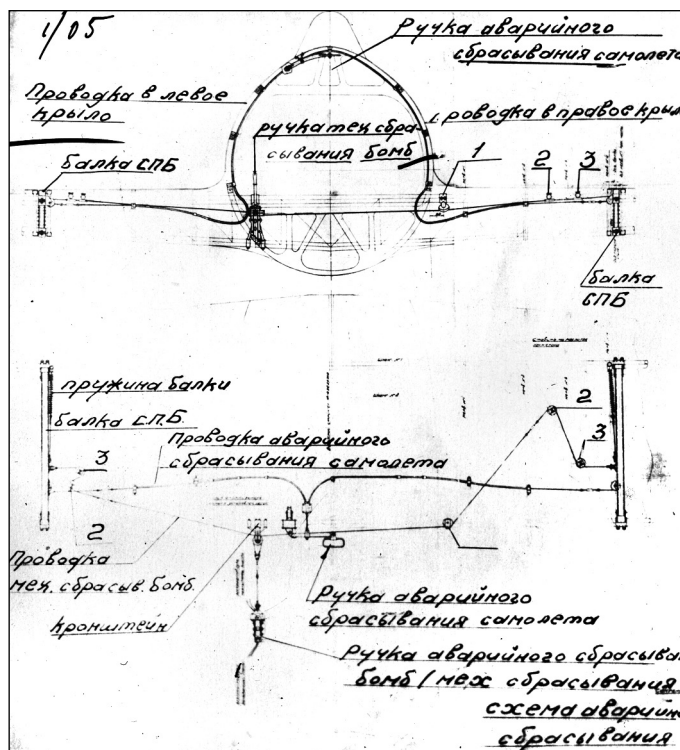 1/05
Ручка аварийного
сбрасывания самолета
Проводка в левое
крыло
роводка в правое крыл
ручка тех сбра-
сывания бомб
1
2
3
балка СПБ
балка
СПБ
пружина балки
балка СПБ.
2
3
Проводка аварийного
сбрасывания самолета
3
2
Проводка
мех. сбрасыв. бомб.
кронштейн
Ручка аварийного
сбрасывания самолета
Ручка аварийного сбрасыва
бомб / мех сбрасывания
схема аварийно
сбрасывания